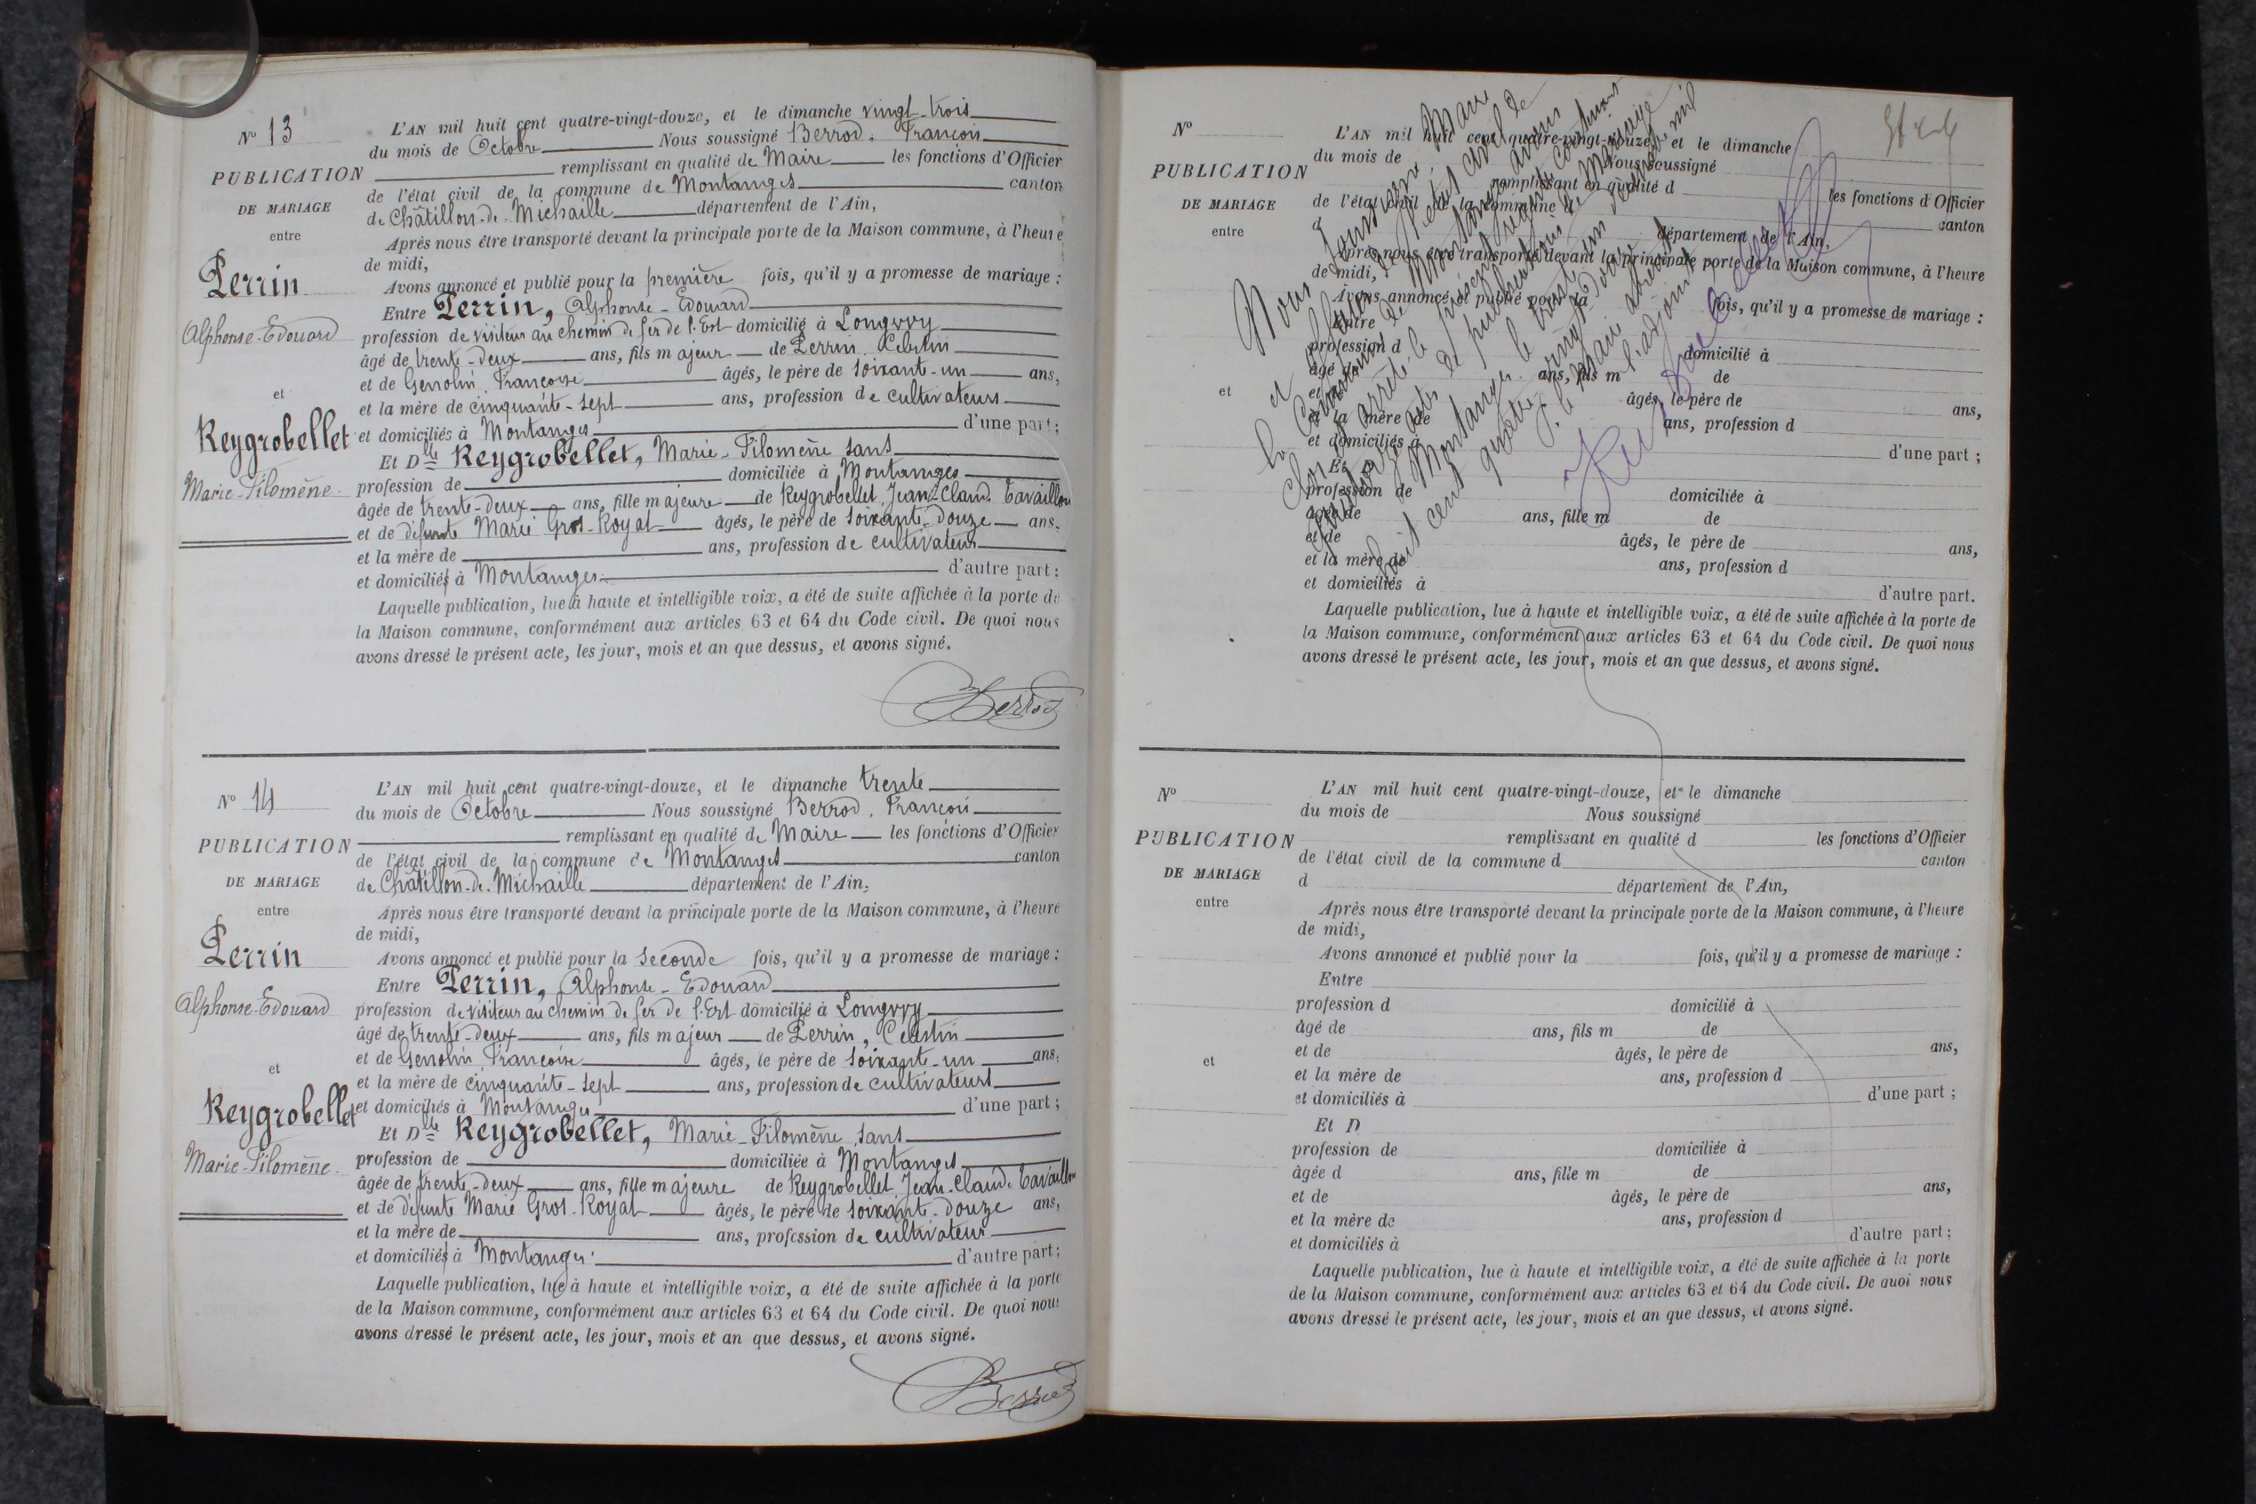 N° 13
PUBLICATION
DE MARIAGE
entre
Perrin
Alphonse-Edouard
et
Reygrobellet
Marie-Filomène
L'AN mil huit cent quatre-vingt-douze, et le dimanche vingt-trois
du mois de Octobre Nous soussigné Berrod, François
remplissant en qualité de Maire les fonctions d'Officier
de l'état civil de la commune de Montanges canton
de Châtillon-de-Michaille département de l'Ain,
Après nous être transporté devant la principale porte de la Maison commune, à l'heure
de midi,
Avons annoncé et publié pour la première fois, qu'il y a promesse de mariage :
Entre Perrin, Alphonse-Edouard
profession de visiteur au chemin de fer de l'Est domicilié à Longwy
âgé de trente-deux ans, fils majeur de Perrin, Célestin
et de Genolin, Françoise âgés, le père de soixante-un ans,
et la mère de cinquante-sept ans, profession de cultivateurs
et domiciliés à Montanges d'une part;
Et Dlle Reygrobellet, Marie-Filomène sans
profession de domiciliée à Montanges
âgée de trente-deux ans, fille majeure de Reygrobellet, Jean-Claude Tavaillon
et de défunte Marie Gros-Royat âgés, le père de soixante-douze ans.
et la mère de ans, profession de cultivateur
et domiciliés à Montanges d'autre part:
Laquelle publication, lue à haute et intelligible voix, a été de suite affichée à la porte de
la Maison commune, conformément aux articles 63 et 64 du Code civil. De quoi nous
avons dressé le présent acte, les jour, mois et an que dessus, et avons signé.
Berrod
N° 14
PUBLICATION
DE MARIAGE
entre
Perrin
Alphonse-Edouard
et
Reygrobellet
Marie-Filomène
L'AN mil huit cent quatre-vingt-douze, et le dimanche trente
du mois de Octobre Nous soussigné Berrod, François
remplissant en qualité de Maire les fonctions d'Officier
de l'état civil de la commune de Montanges canton
de Châtillon-de-Michaille département de l'Ain,
Après nous être transporté devant la principale porte de la Maison commune, à l'heure
de midi,
Avons annoncé et publié pour la seconde fois, qu'il y a promesse de mariage :
Entre Perrin, Alphonse-Edouard
profession de visiteur au chemin de fer de l'Est domicilié à Longwy
âgé de trente-deux ans, fils majeur de Perrin, Célestin
et de Genolin, Françoise âgés, le père de soixante-un ans,
et la mère de cinquante-sept ans, profession de cultivateurs
et domiciliés à Montanges d'une part;
Et Dlle Reygrobellet, Marie-Filomène sans
profession de domiciliée à Montanges
âgée de trente-deux ans, fille majeure de Reygrobellet, Jean-Claude Tavaillon
et de défunte Marie Gros-Royat âgés, le père de soixante-douze ans,
et la mère de ans, profession de cultivateur
et domiciliés à Montanges d'autre part;
Laquelle publication, lue à haute et intelligible voix, a été de suite affichée à la porte
de la Maison commune, conformément aux articles 63 et 64 du Code civil. De quoi nous
avons dressé le présent acte, les jour, mois et an que dessus, et avons signé.
Berrod
N°
PUBLICATION
DE MARIAGE
entre
et
L'AN mil huit cent quatre-vingt-douze, et le dimanche
du mois de Nous soussigné
remplissant en qualité d les fonctions d'Officier
de l'état civil de la commune d canton
d département de l'Ain,
Après nous être transporté devant la principale porte de la Maison commune, à l'heure
de midi,
Avons annoncé et publié pour la fois, qu'il y a promesse de mariage :
Entre
profession d domicilié à
âgé de ans, fils m de
et de âgés, le père de ans,
et la mère de ans, profession d
et domiciliés à d'une part ;
Et D
profession de domiciliée à
âgée de ans, fille m de
et de âgés, le père de ans,
et la mère de ans, profession d
et domiciliés à d'autre part.
Laquelle publication, lue à haute et intelligible voix, a été de suite affichée à la porte de
la Maison commune, conformément aux articles 63 et 64 du Code civil. De quoi nous
avons dressé le présent acte, les jour, mois et an que dessus, et avons signé.
Nous soussigné, Maire
et officier de l'état civil de
la Commune de Montanges avons
clos et arrêté le présent registre contenant
quatorze actes de publications de mariage
à Montanges le trente un décembre mil
huit cent quatre vingt douze
P. le maire absent
l'adjoint
N°
PUBLICATION
DE MARIAGE
entre
et
L'AN mil huit cent quatre-vingt-douze, et le dimanche
du mois de Nous soussigné
remplissant en qualité d les fonctions d'Officier
de l'état civil de la commune d canton
d département de l'Ain,
Après nous être transporté devant la principale porte de la Maison commune, à l'heure
de midi,
Avons annoncé et publié pour la fois, qu'il y a promesse de mariage :
Entre
profession d domicilié à
âgé de ans, fils m de
et de âgés, le père de ans,
et la mère de ans, profession d
et domiciliés à d'une part ;
Et D
profession de domiciliée à
âgée d ans, fille m de
et de âgés, le père de ans,
et la mère de ans, profession d
et domiciliés à d'autre part;
Laquelle publication, lue à haute et intelligible voix, a été de suite affichée à la porte
de la Maison commune, conformément aux articles 63 et 64 du Code civil. De quoi nous
avons dressé le présent acte, les jour, mois et an que dessus, et avons signé.